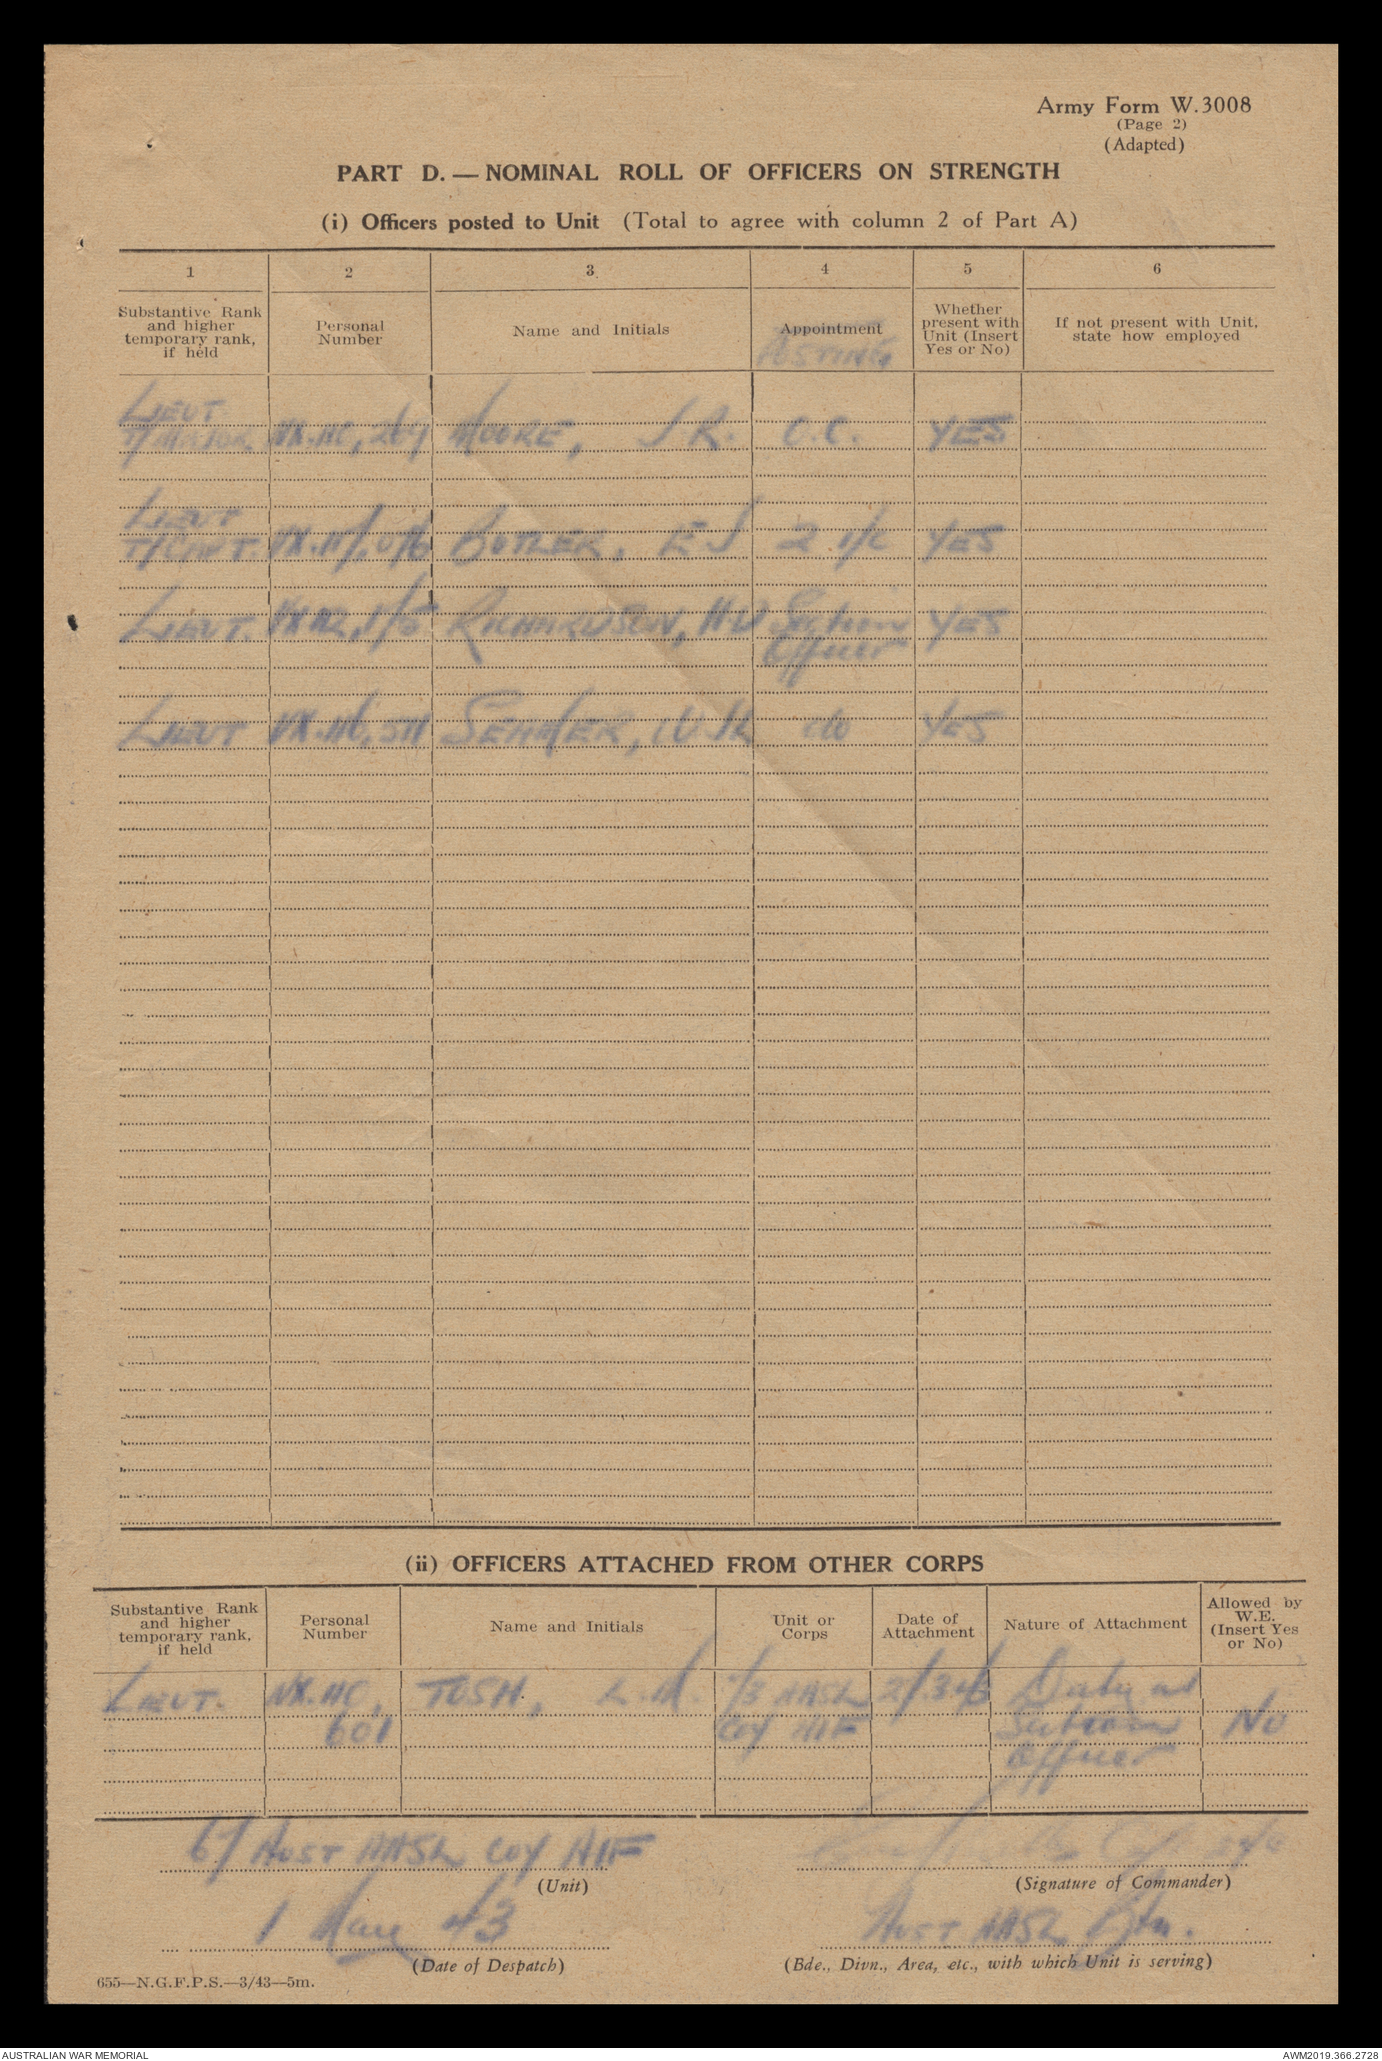 Army Form W.3008
(Page 2)
(Adapted)
PART D. — NOMINAL ROLL OF OFFICERS ON STRENGTH
(i) Officers posted to Unit (Total to agree with column 2 of Part A)
1 2 3. 4 5 6
Substantive Rank
and higher
temporary rank,
if held
Personal
Number
Name and Initials
Appointment
POSTING
Whether
present with
Unit (Insert
Yes or No)
If not present with Unit,
state how employed
LIEUT
T/MAJOR MOORE, J.R. O.C. YES
LIEUT
T/CAPT. BUTLER, E J 2 i/c YES
LIEUT. RICHARDSON, Section YES
Officer
LIEUT do YES
(ii) OFFICERS ATTACHED FROM OTHER CORPS
Substantive Rank
and higher
temporary rank,
if held
Personal
Number
Name and Initials
Unit or
Corps
Date of
Attachment
Nature of Attachment
Allowed by
W.E.
(Insert Yes
or No)
LIEUT. NX.110, TOSH, L.M. Duty as
601 COY AIF Section No
Officer
AUST AASL COY AIF
(Unit)
(Signature of Commander)
1 May 43
AUST AASL
(Date of Despatch)
(Bde., Divn., Area, etc., with which Unit is serving)
655—N.G.F.P.S.—3/43—5m.
AUSTRALIAN WAR MEMORIAL
AWM2019.366.2728